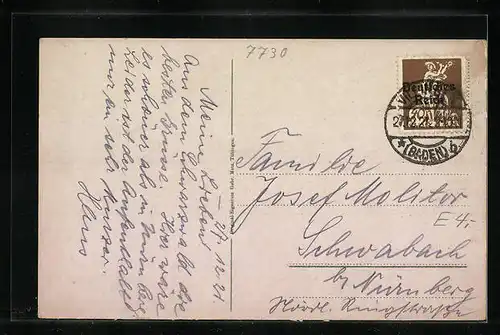 7730
Meine Lieben!
21.12.21
Aus dem Schwarzwald die
besten Grüsse. Hier wäre
es schöner als in Nürnberg
Leider ist der Aufenthalt
nur ein sehr kurzer.
Hans
Familie
Josef Molitor
Schwabach
bei Nürnberg
Nördl. Ringstraße
E 4.-
Deutsches
Reich
(BADEN) b